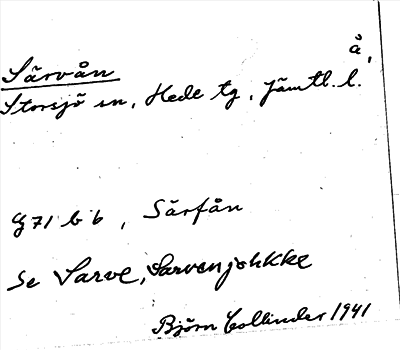 Särvån å,
Storsjö sn, Hede tg, Jämtl. l.
G 71 b b, Särfån
Se Sarve, Sarvenjohkke
Björn Collinder 1941